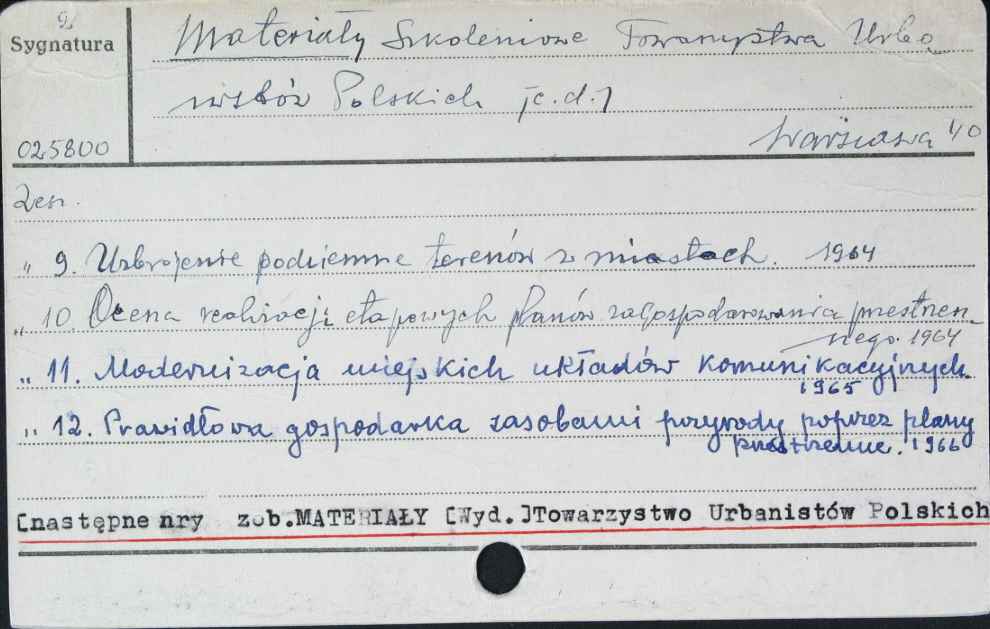 9
Sygnatura
Materiały Szkoleniowe Towarzystwa Urba
nistów Polskich [c.d.]
Warszawa 40
025800
Zesz.
" 9. Uzbrojenie podziemne terenów w miastach. 1964
" 10. Ocena realizacji etapowych planów zagospodarowania przestrzen
nego. 1964
" 11. Modernizacja miejskich układów komunikacyjnych
1965
" 12. Prawidłowa gospodarka zasobami przyrody poprzez plany
przestrzenne. 1966
[następne nry zob.MATERIAŁY [Wyd.]Towarzystwo Urbanistów Polskich